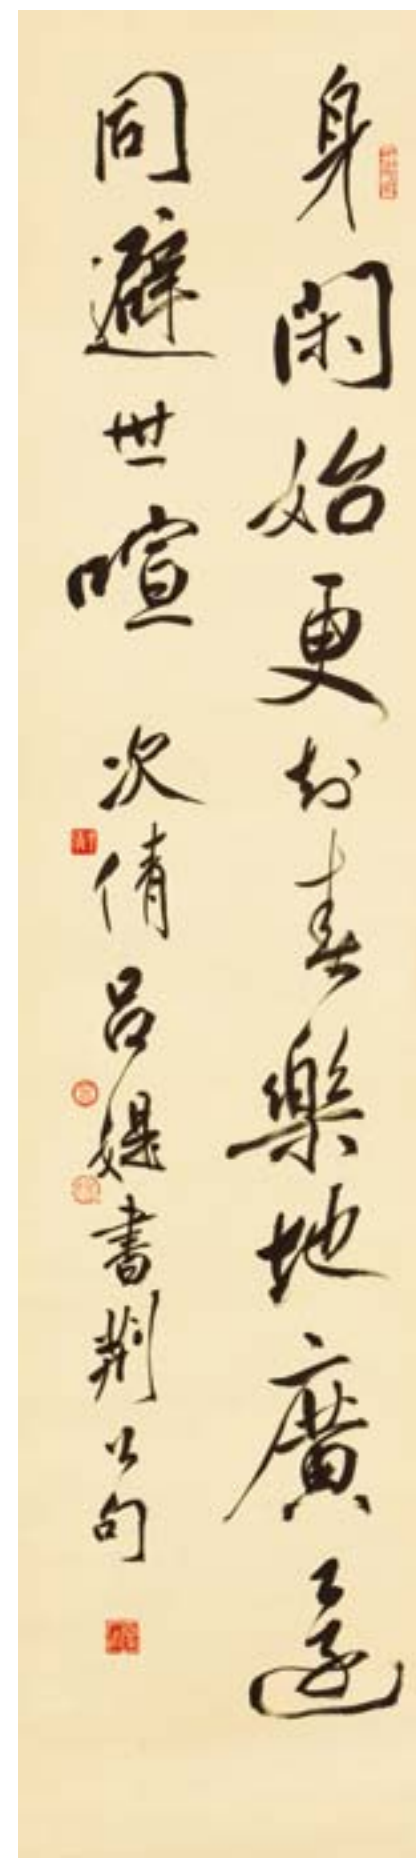 身閑始更知春樂地廣還
同避世喧 次倩呂媞書荊公句